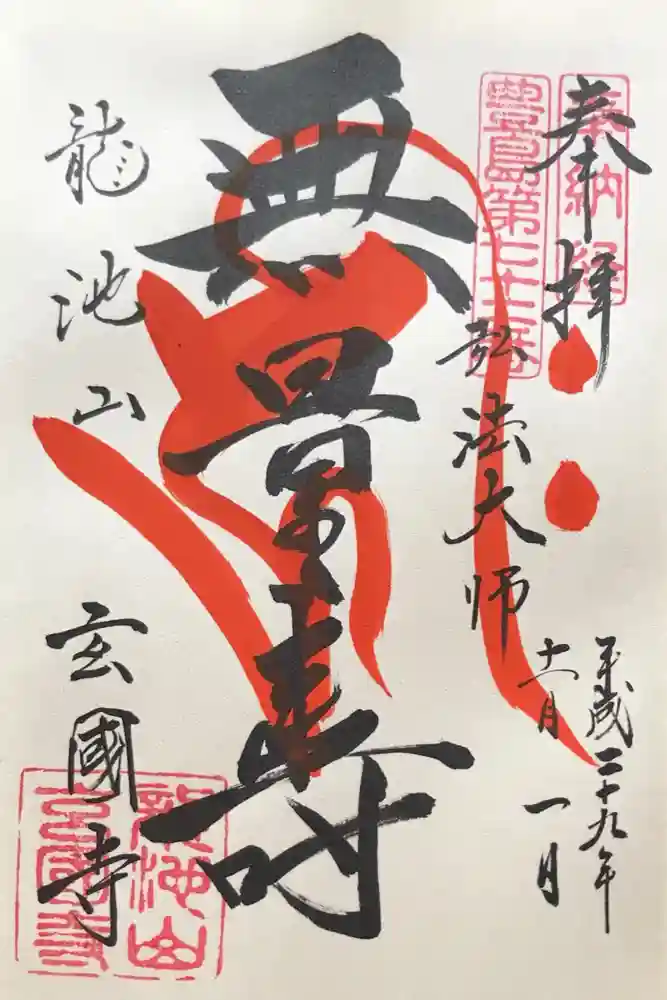 奉拝
奉納経
平成二十九年
十一月
一日
豊島第二十二番
弘法大師
無量壽
龍池山
玄國寺
龍池山
玄國寺